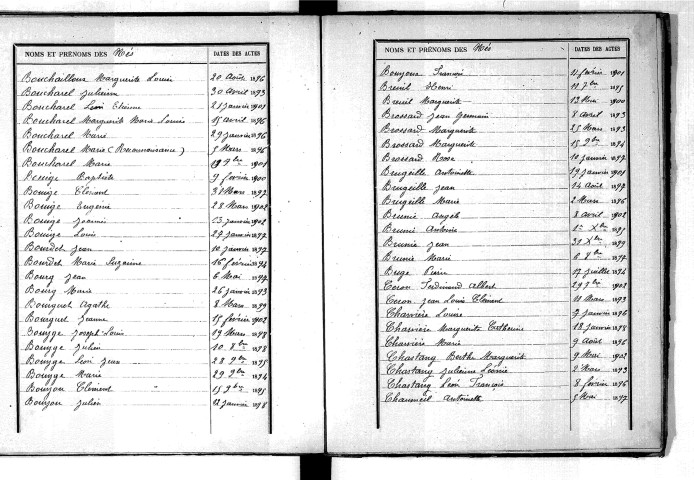 NOMS ET PRÉNOMS DES Nés DATES DES ACTES
Bouchaillou Marguerite Louise 20 Août 1896
Boucharel Julienne 30 avril 1893
Boucharel Léon Etienne 21 janvier 1901
Boucharel Marguerite Marie Louise 15 avril 1896
Boucharel Marie 29 janvier 1896
Boucharel Marie (Reconnaissance) 5 Mars 1896
Boucharel Marie 1901
Baptiste 9 février 1900
Bouige Clément 31 Mars 1897
Bouige Eugénie 28 Mars 1902
Bouige Jeanne 13 janvier 1902
Bouige Louis 27 janvier 1897
Bourdet Jean 10 janvier 1897
Bourdet Marie Suzanne 16 février 1894
Bourg Jean 6 Mai 1897
Bourg Marie 26 janvier 1893
Bourguet Agathe 8 Mars 1899
Bourguet Jeanne 15 février 1902
Bouyge Joseph Louis 19 Mars 1898
Bouyge Julien 10 8bre 1898
Bouyge Léon Jean 28 9bre 1895
Bouyge Marie 29 9bre 1894
Bouzon Clément 15 9bre 1895
Bouzon Julien 12 janvier 1898
NOMS ET PRÉNOMS DES Nés DATES DES ACTES
François 11 février 1901
Breuil Henri 11 7bre 1895
Breuil Marguerite 13 Mai 1900
Brossard Jean Germain 8 avril 1893
Brossard Marguerite 25 Mars 1893
Brossard Marguerite 15 9bre 1894
Brossard Rose 10 janvier 1897
Brugeille Antoinette 19 janvier 1901
Brugeille Jean 14 Août 1897
Brugeille Marie 2 Mars 1896
Brunie Angèle 8 avril 1902
Brunie Antoine Xbre 1895
Brunie Jean 31 Xbre 1899
Brunie Marie 6 8bre 1897
Buge 17 juillet 1894
Ceron Ferdinand Albert 29 7bre 1902
Ceron Jean Louis Clément 11 Mars 1893
Charvière Louise 7 janvier 1896
Charvière Marguerite Catherine 18 janvier 1898
Charvière Marie 9 Août 1896
Chastang Berthe Marguerite 9 Mai 1902
Chastang Julienne Léonie 2 Mars 1893
Chastang Léon François 8 février 1896
Chaumeil Antoinette 5 Mai 1897